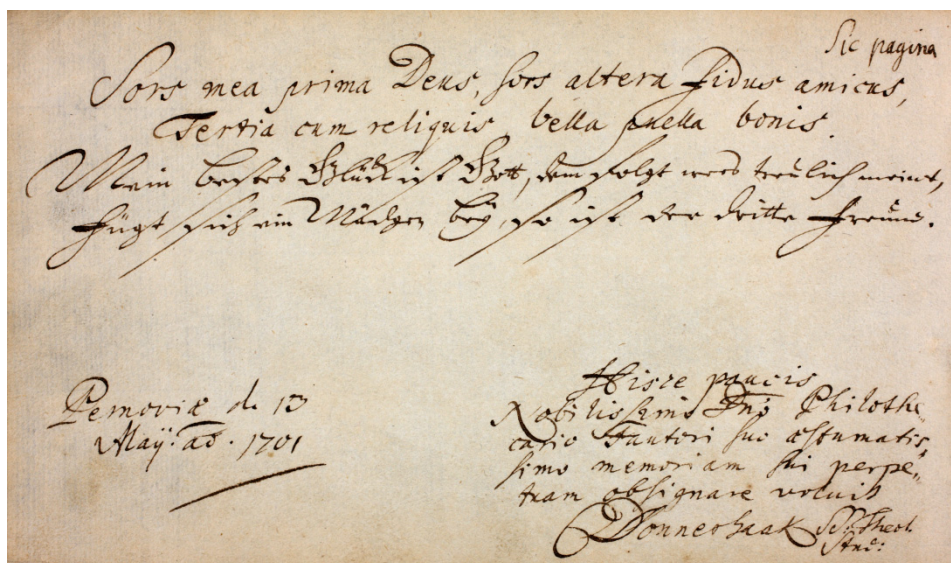 Sic pagina
Sors mea prima Deus, sors altera fidus amicus,
Tertia cum reliquis bella puella bonis.
Mein bestes Glück ist Gott, dem folgt wers treülich meint,
fügt sich ein Mädgen beÿ, so ist der dritte freünd.
Hisce paucis
Nobilissimo Dño Philothe
cario Fautori suo æstumatis
simo memoriam sui perpe„
tuam obsignare voluit
Donnerhaak SS. Theol.
Stud:
Pernoviæ d. 13
Maÿ. aō. 1701